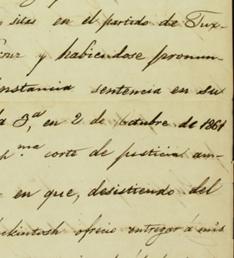 sitas en el partido de Tux-
cruz y habiendose pronun-
instancia sentencia en su
la 3ª, en 2 de octubre de 1861
p.ma corte de justicia am-
en que, desistiendo del
ckintosh ofrecio entregar á mis